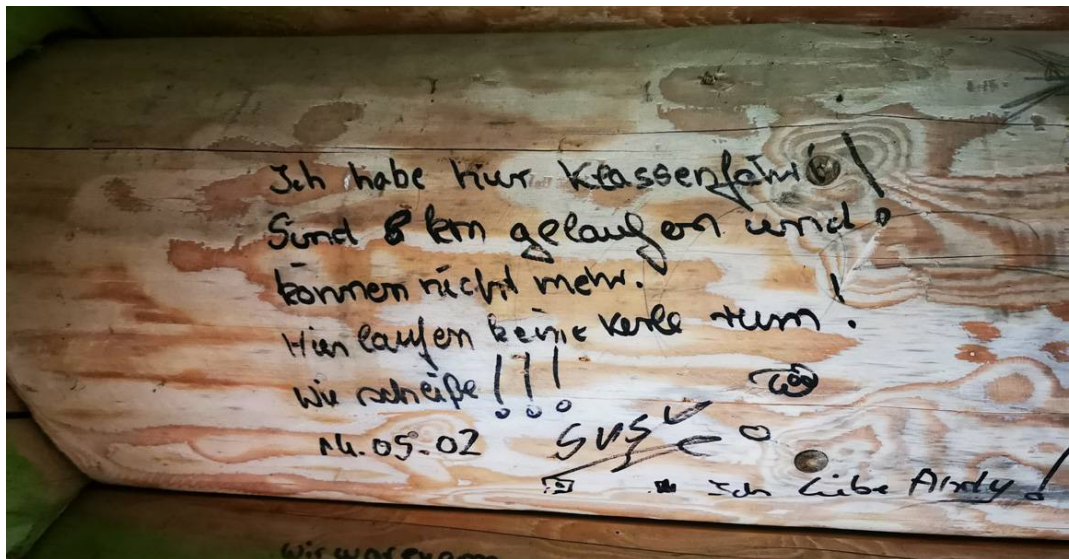 Ich habe hier Klassenfahrt!
Sind 8 km gelaufen und
können nicht mehr.
Hier laufen keine Kerle rum!
Wie scheiße!!!
14.05.02
SVS
Ich liebe Andy!
wir waren am